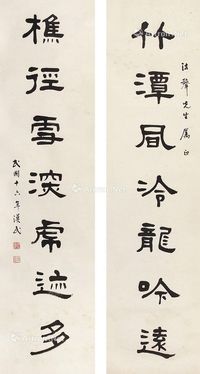 聲先生屬正
竹潭風冷龍吟遠
樵徑雪深虎迹多
民國十六年漢民